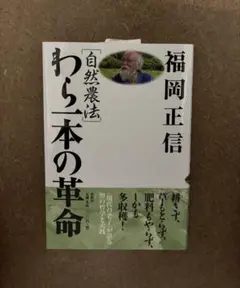 福岡正信
[自然農法]
わら一本の革命
耕さず、
草もとらず、
肥料もやらず、
しかも
多収穫!